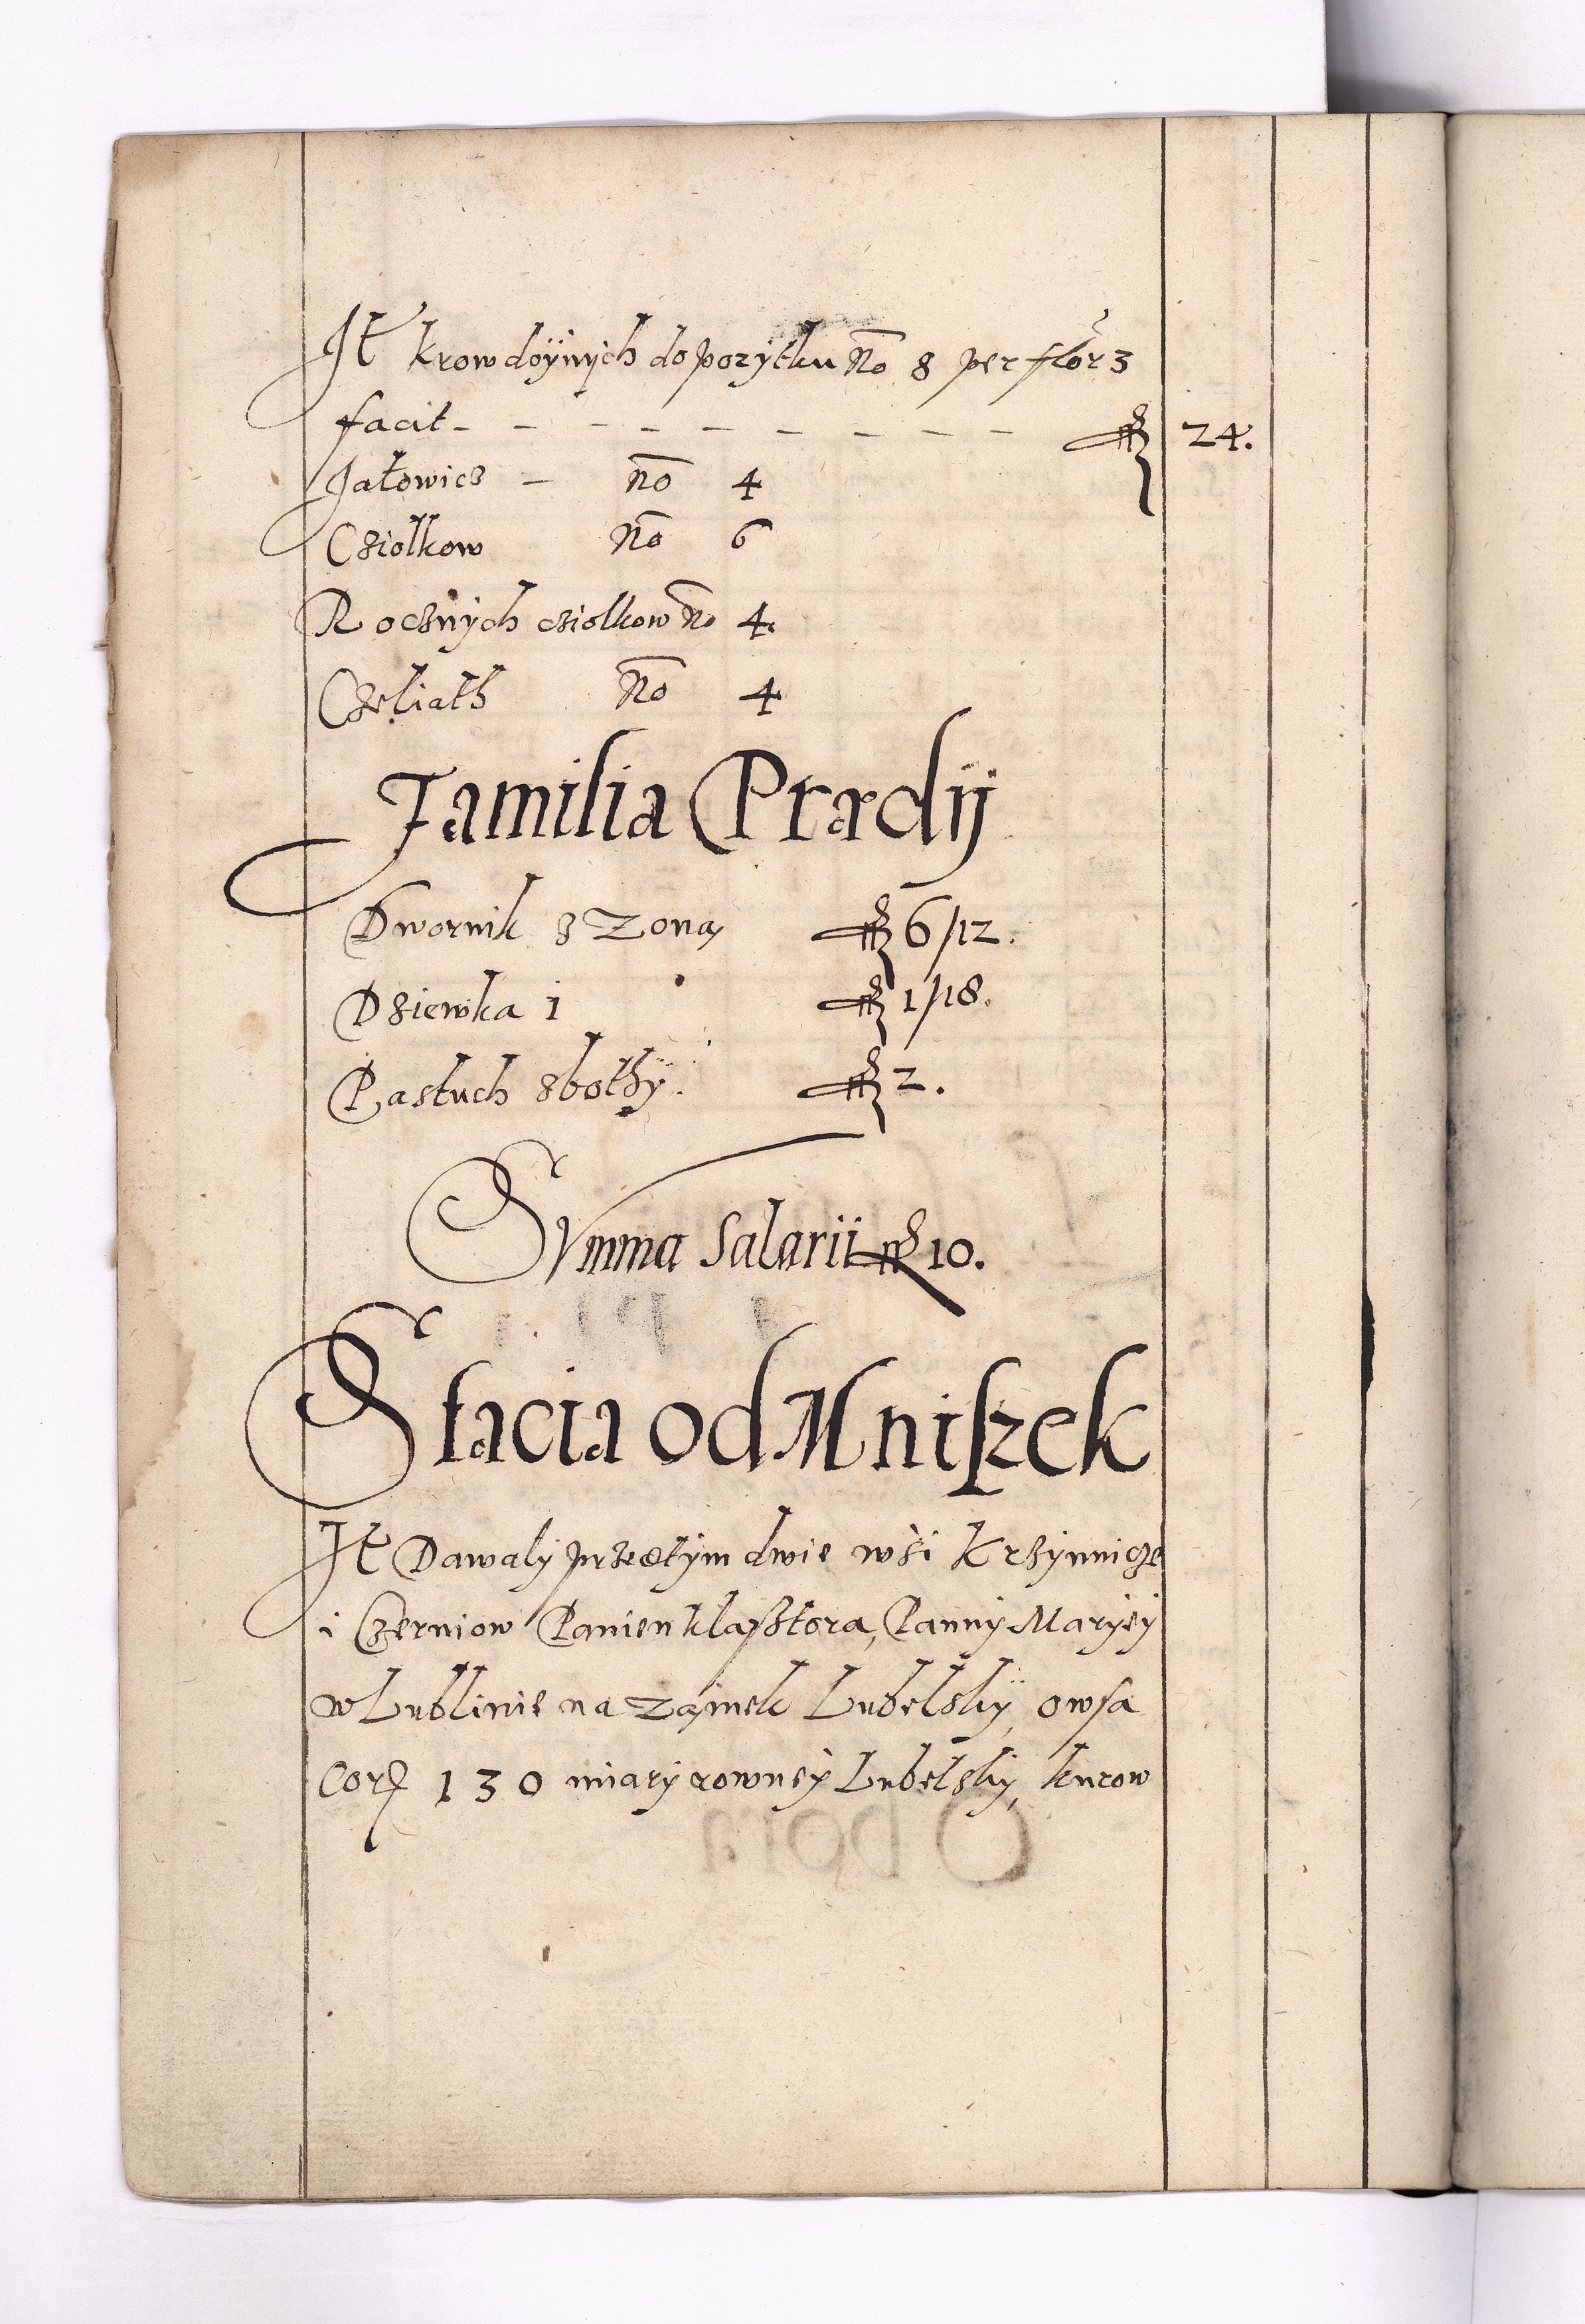 Jt krow doÿnych do pozytku No 8 per flor 3
facit - - - - - - - - - 24.
Jałowicz - No 4
Cziołkow No 6
Rocznych cziolkow No 4
Czeliath No 4
Familia Prædij
Dwornik z Zoną 6/12.
Dziewka 1 1/18.
Pastuch zbothy. 2.
Summa Salarii 10.
Stacia od Mniszek
Jt Dawaly przetym dwie wśi Krzynnicze
i Czerniow Panien klaßtora, Panny Maryey
w Lublinie na Zamek Lubelsky, owsa
Cor 130 miary rowney Lubelsky, kurow